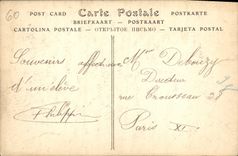 60
POST CARD Carte Postale POSTKARTE
BRIEFKAART - POSTKAART
CARTOLINA POSTALE - ОТКРЫТОЕ ПИСЬМО - TARJETA POSTAL
Souvenirs affectueux
d'un élève
Philippi
Mr Debouzy
Directeur
rue Trousseau 28
Paris XI